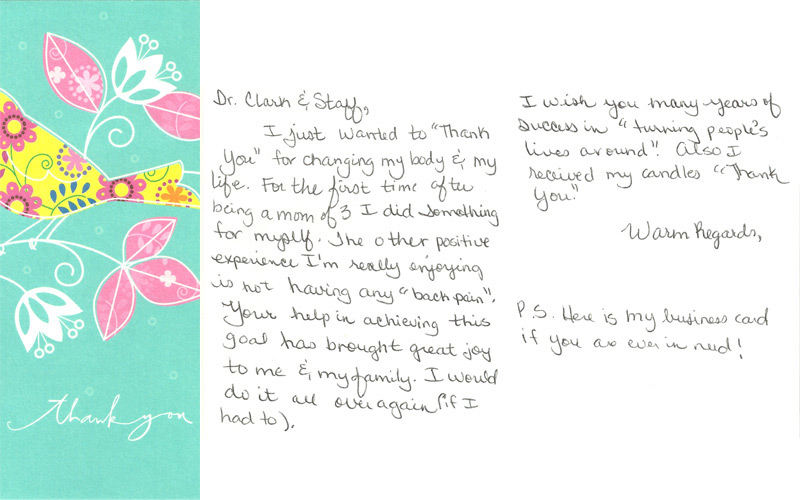 thank you
Dr. Clark & Staff,
I just wanted to "Thank
You" for changing my body & my
life. For the first time after
being a mom of 3 I did something
for myself. The other positive
experience I'm really enjoying
is not having any "back pain".
Your help in achieving this
goal has brought great joy
to me & my family. I would
do it all over again (if I
had to).
I wish you many years of
success in "turning people's
lives around". Also I
received my candles "Thank
You."
Warm Regards,
P.S. Here is my business card
if you are ever in need!